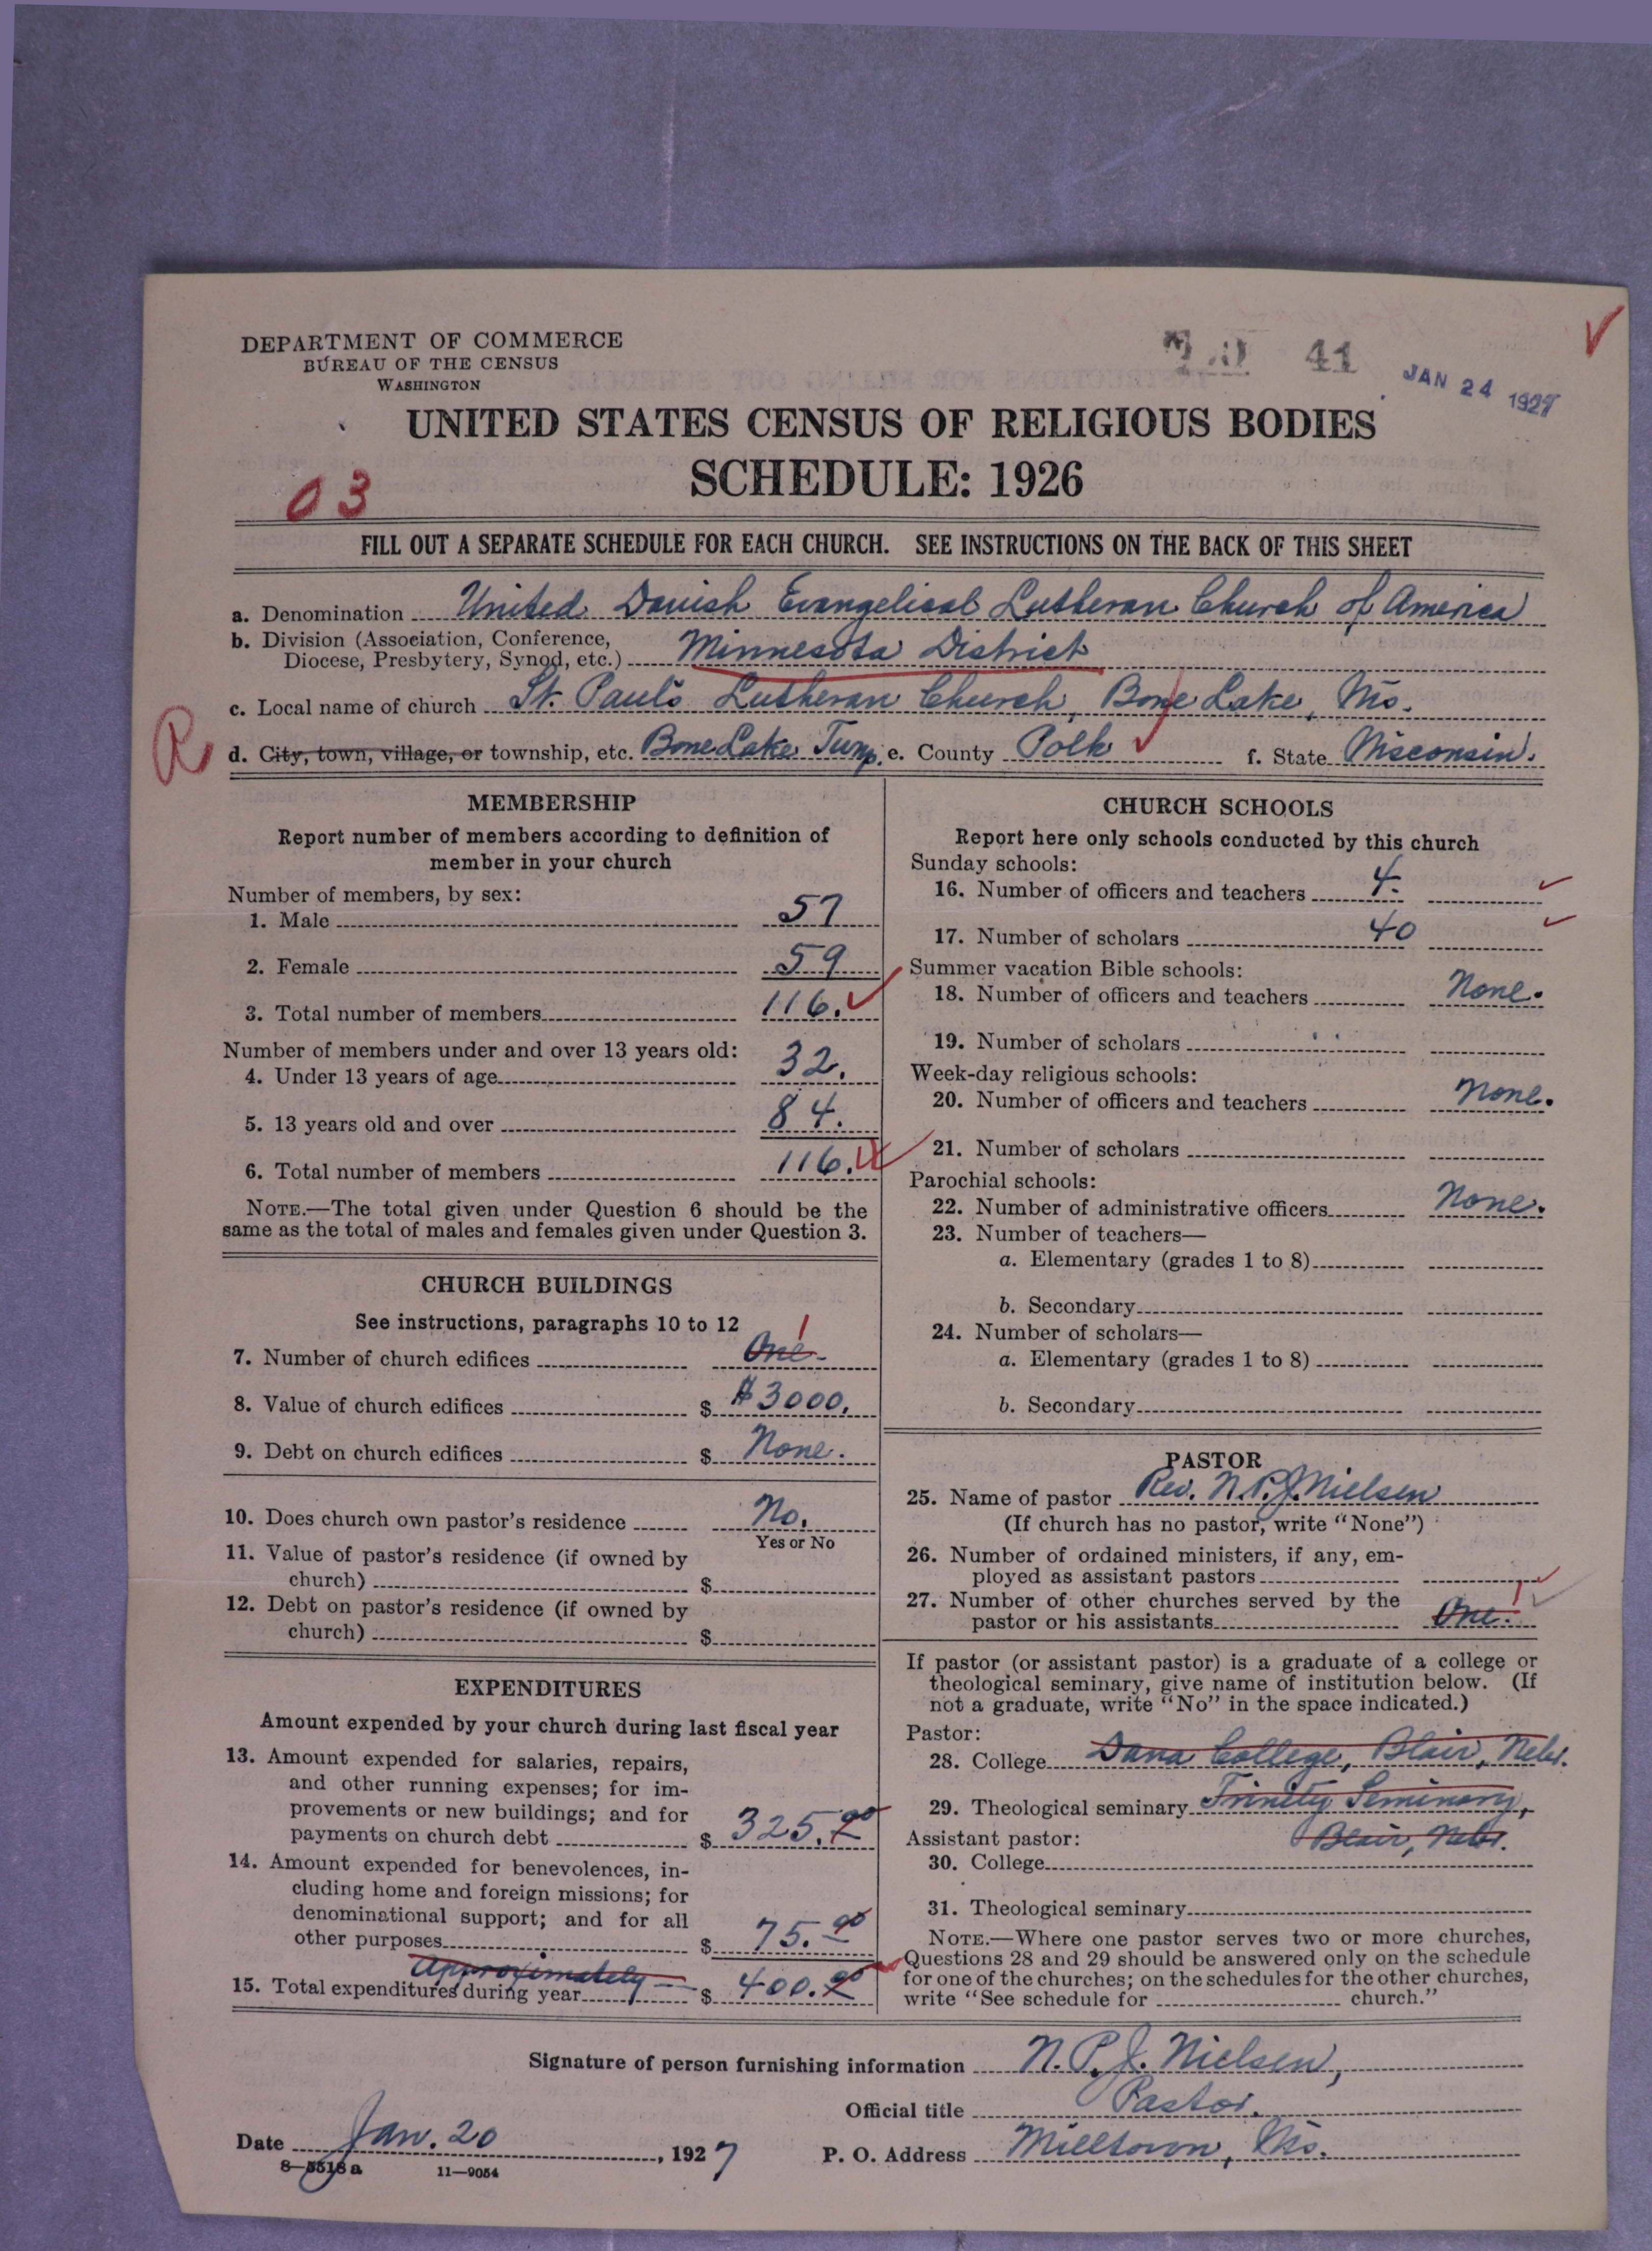 DEPARTMENT OF COMMERCE
BUREAU OF THE CENSUS
WASHINGTON
41
JAN 24 1927
UNITED STATES CENSUS OF RELIGIOUS BODIES
SCHEDULE: 1926
03
FILL OUT A SEPARATE SCHEDULE FOR EACH CHURCH. SEE INSTRUCTIONS ON THE BACK OF THIS SHEET
a. Denomination United Danish Evangelical Lutheran Church of America
b. Division (Association, Conference,
Diocese, Presbytery, Synod, etc.) Minnesota District
c. Local name of church St. Paul's Lutheran Church, Bone Lake, Wis.
R
d. City, town, village, or township, etc. Bone Lake Twnp. e. County Polk f. State Wisconsin.
MEMBERSHIP
Report number of members according to definition of
member in your church
Number of members, by sex:
1. Male 57
2. Female 59
3. Total number of members 116.
Number of members under and over 13 years old:
4. Under 13 years of age 32.
5. 13 years old and over 84.
6. Total number of members 116.
NOTE.—The total given under Question 6 should be the
same as the total of males and females given under Question 3.
CHURCH BUILDINGS
See instructions, paragraphs 10 to 12
1
7. Number of church edifices One
8. Value of church edifices $ $3000.
9. Debt on church edifices $ None.
10. Does church own pastor's residence No.
Yes or No
11. Value of pastor's residence (if owned by
church) $
12. Debt on pastor's residence (if owned by
church) $
EXPENDITURES
Amount expended by your church during last fiscal year
13. Amount expended for salaries, repairs,
and other running expenses; for im-
provements or new buildings; and for
payments on church debt $ 325.00
14. Amount expended for benevolences, in-
cluding home and foreign missions; for
denominational support; and for all
other purposes $ 75.00
Approximately
15. Total expenditures during year $ 400.00
CHURCH SCHOOLS
Report here only schools conducted by this church
Sunday schools:
16. Number of officers and teachers 4.
17. Number of scholars 40
Summer vacation Bible schools:
18. Number of officers and teachers None.
19. Number of scholars
Week-day religious schools:
20. Number of officers and teachers None.
21. Number of scholars
Parochial schools:
22. Number of administrative officers None.
23. Number of teachers—
a. Elementary (grades 1 to 8)
b. Secondary
24. Number of scholars—
a. Elementary (grades 1 to 8)
b. Secondary
PASTOR
25. Name of pastor Rev. N.P.J. Nielsen
(If church has no pastor, write "None")
26. Number of ordained ministers, if any, em-
ployed as assistant pastors
27. Number of other churches served by the
1
pastor or his assistants One.
If pastor (or assistant pastor) is a graduate of a college or
theological seminary, give name of institution below. (If
not a graduate, write "No" in the space indicated.)
Pastor:
28. College Dana College, Blair, Nebr.
29. Theological seminary Trinity Seminary,
Assistant pastor: Blair, Nebr.
30. College
31. Theological seminary
NOTE.—Where one pastor serves two or more churches,
Questions 28 and 29 should be answered only on the schedule
for one of the churches; on the schedules for the other churches,
write "See schedule for church."
Signature of person furnishing information N. P. J. Nielsen,
Official title Pastor.
Date Jan. 20, 1927 P. O. Address Milltown, Wis.
8—5518 a 11—9054